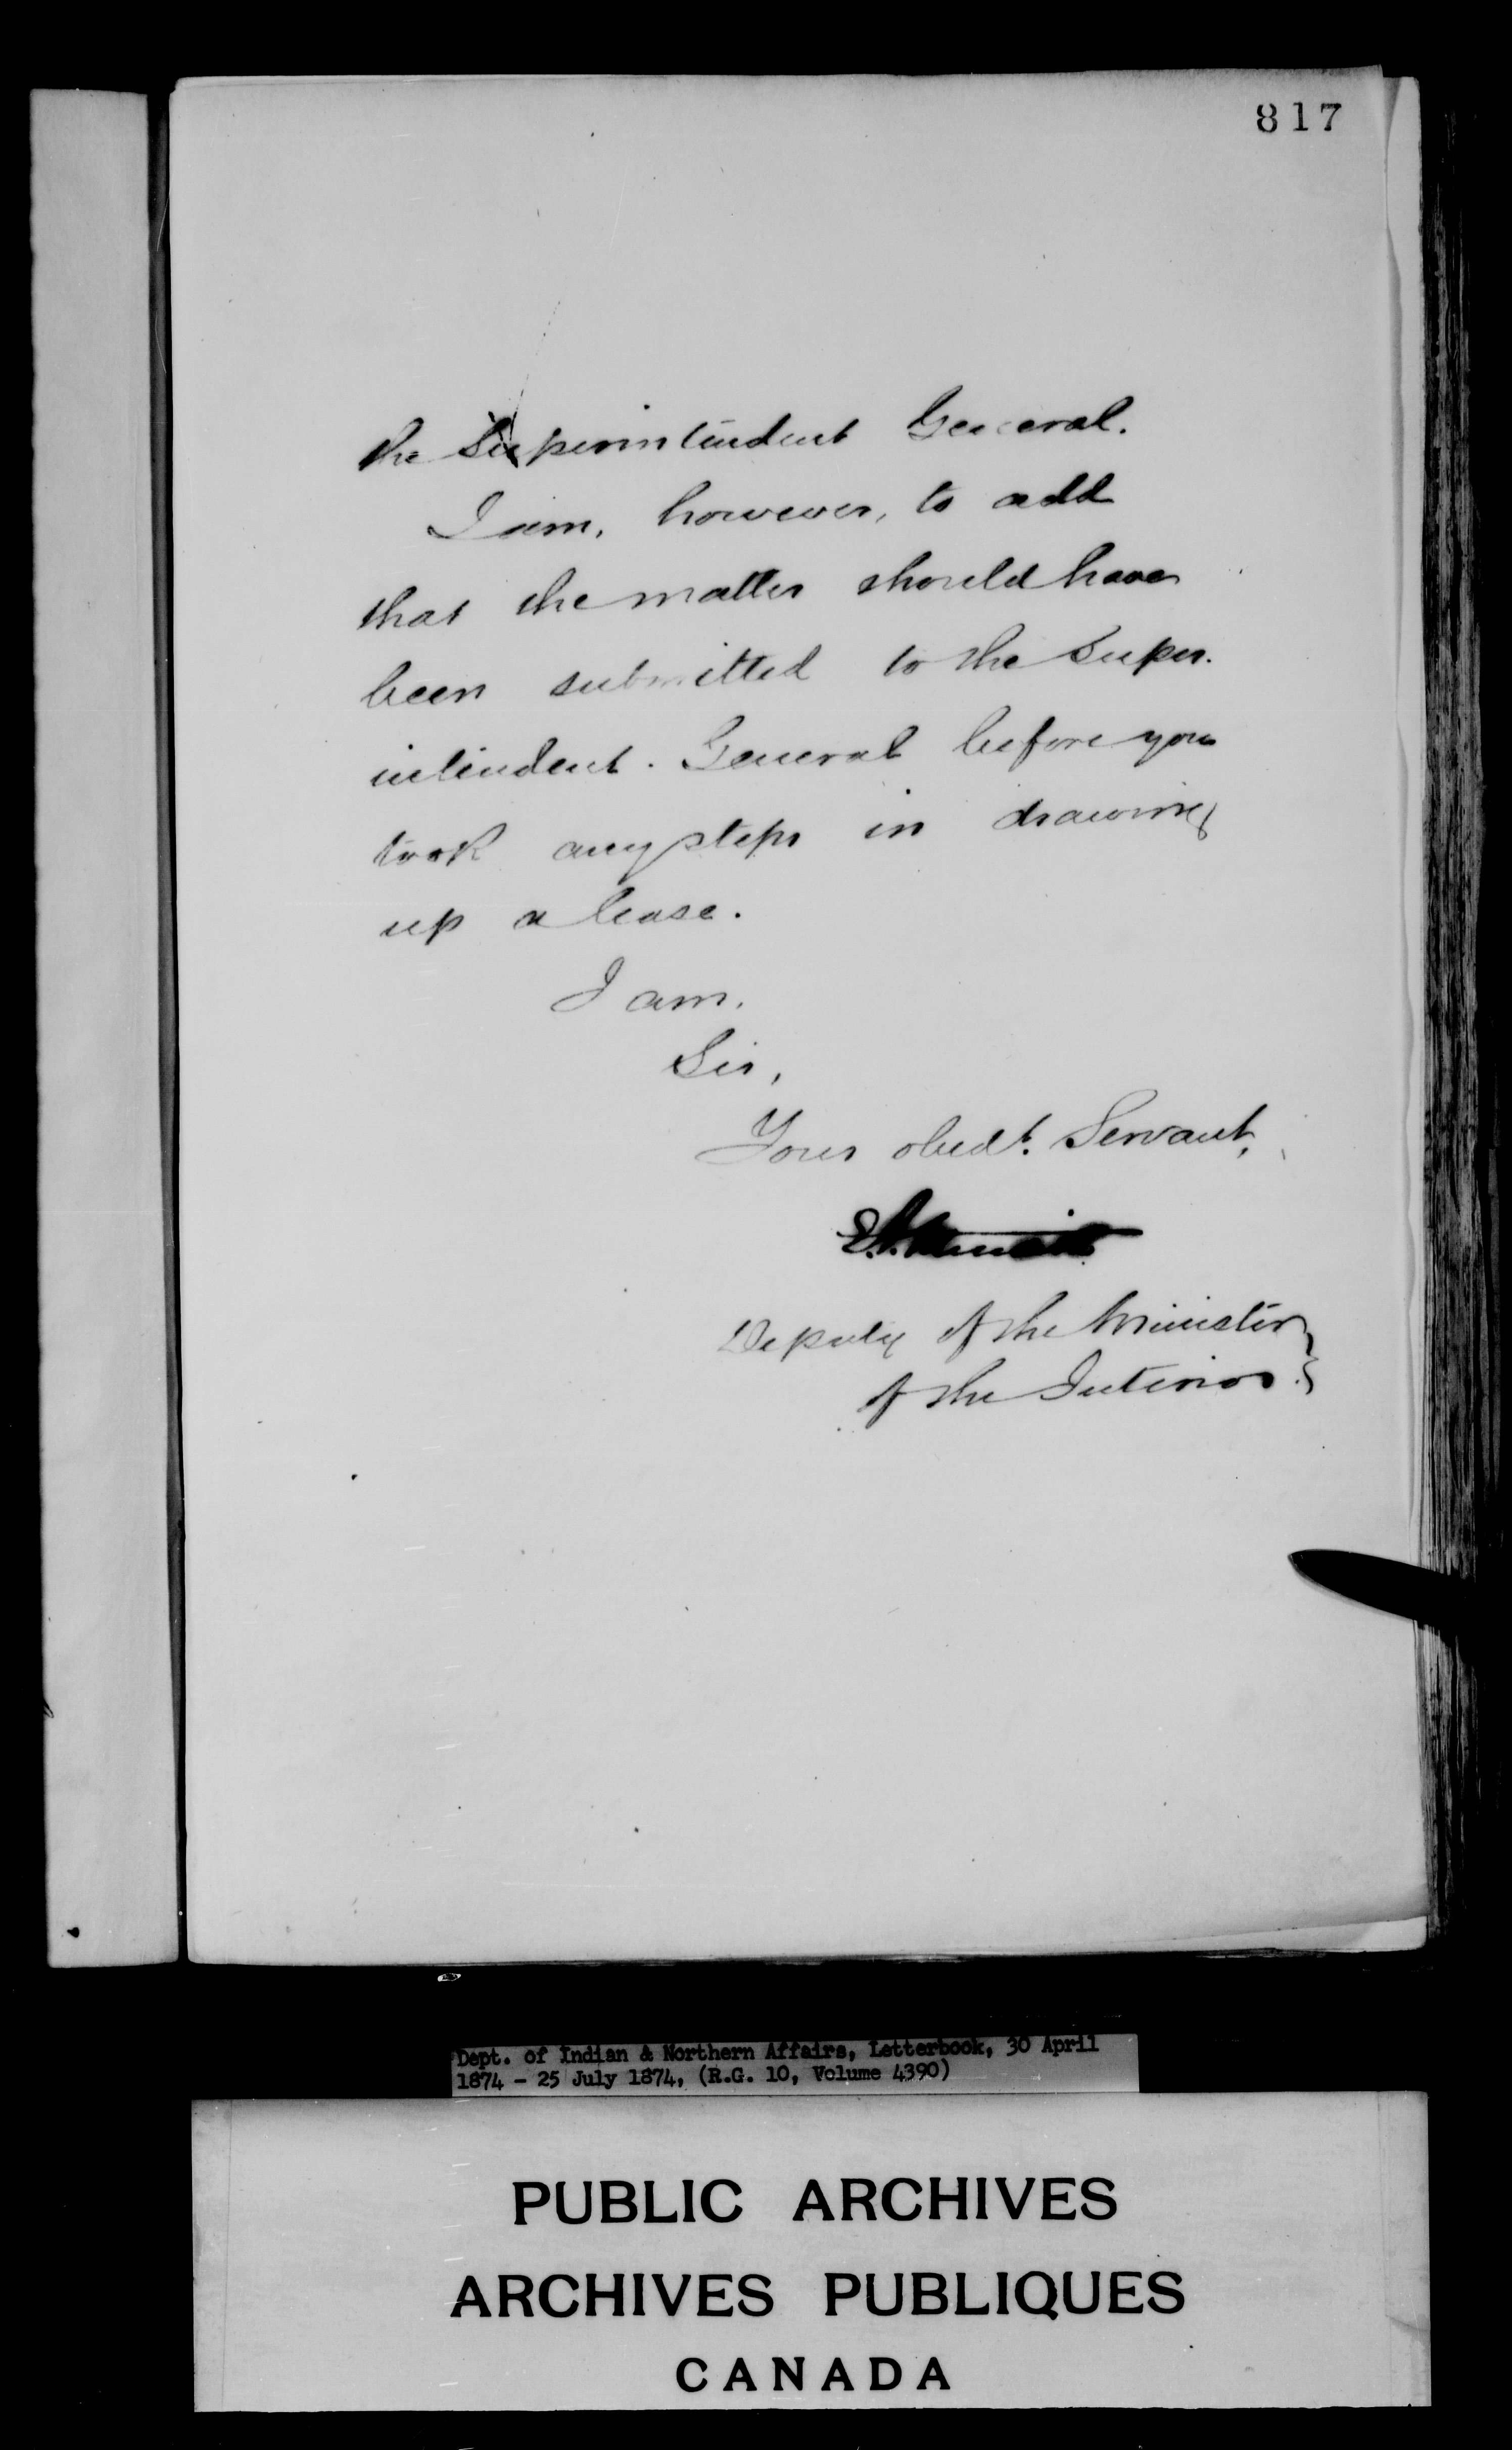 817
the Superintendent General.
I am, however, to add
that the matter should have
been submitted to the Super-
intendent General before you
took any steps in drawing
up a lease.
I am,
Sir,
Your obedt. Servant,
Deputy of the Minister
of the Interior.
Dept. of Indian & Northern Affairs, Letterbook, 30 April
1874 - 25 July 1874, (R.G. 10, Volume 4390)
PUBLIC ARCHIVES
ARCHIVES PUBLIQUES
CANADA